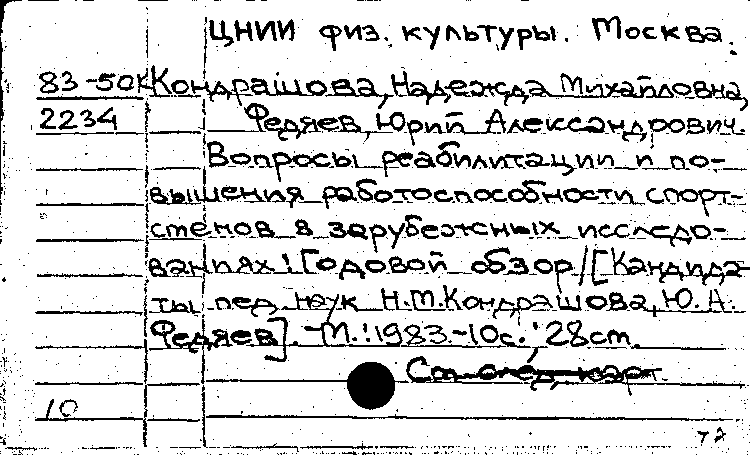 ЦНИИ физ. культуры. Москва.
83-50К Кондрашова, Надежда Михайловна,
2234 Федяев, Юрий Александрович.
Вопросы реабилитации и по-
вышения работоспособности спорт-
сменов в зарубежных исследо-
ваниях: Годовой обзор/[Кандида-
ты пед. наук Н.М.Кондрашова, Ю.А.
Федяев]. - М.: 1983.-10с.; 28см.
См. след. карт.
10